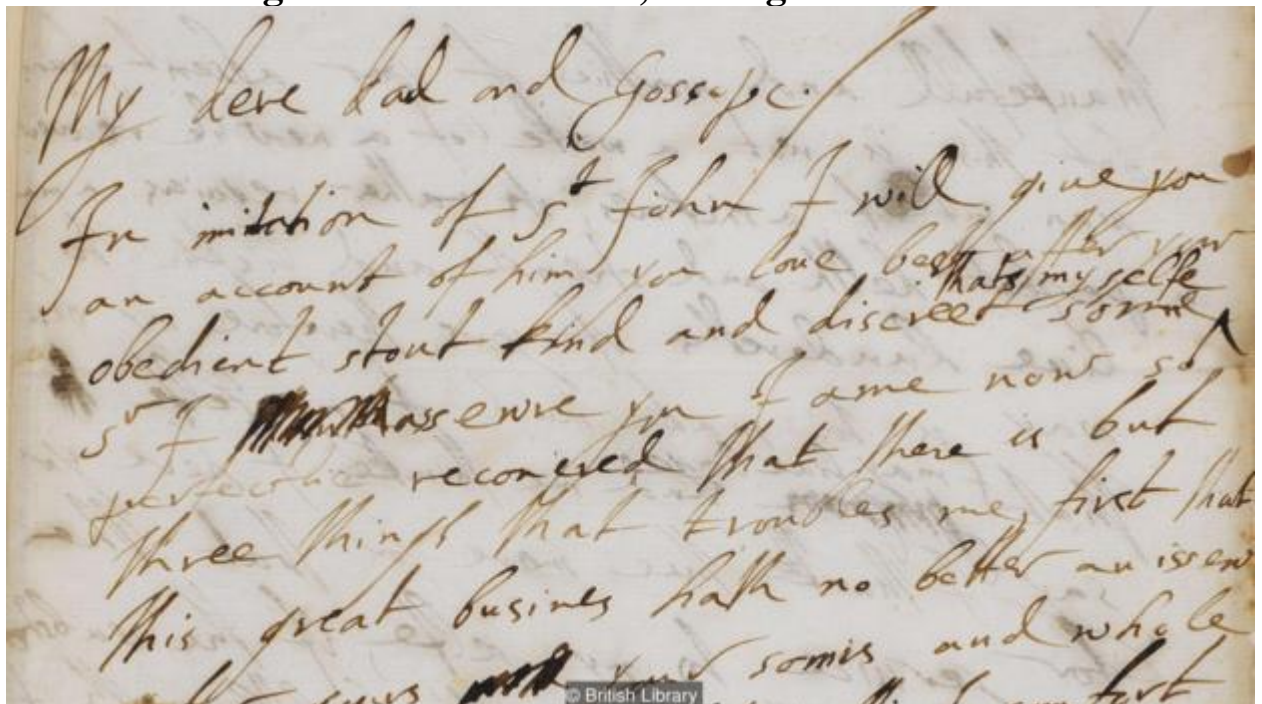 My dere dad and Gossope.
In imitation of St John I will give you
an account of him you love best after your
thats my selfe
obedient stout kind and discreet sonne
Sr I assewre you I ame now so
perfectlie recovered that there is but
three things that troubles me, first that
this great busines hath no better an issew
your sonns and whole
© British Library